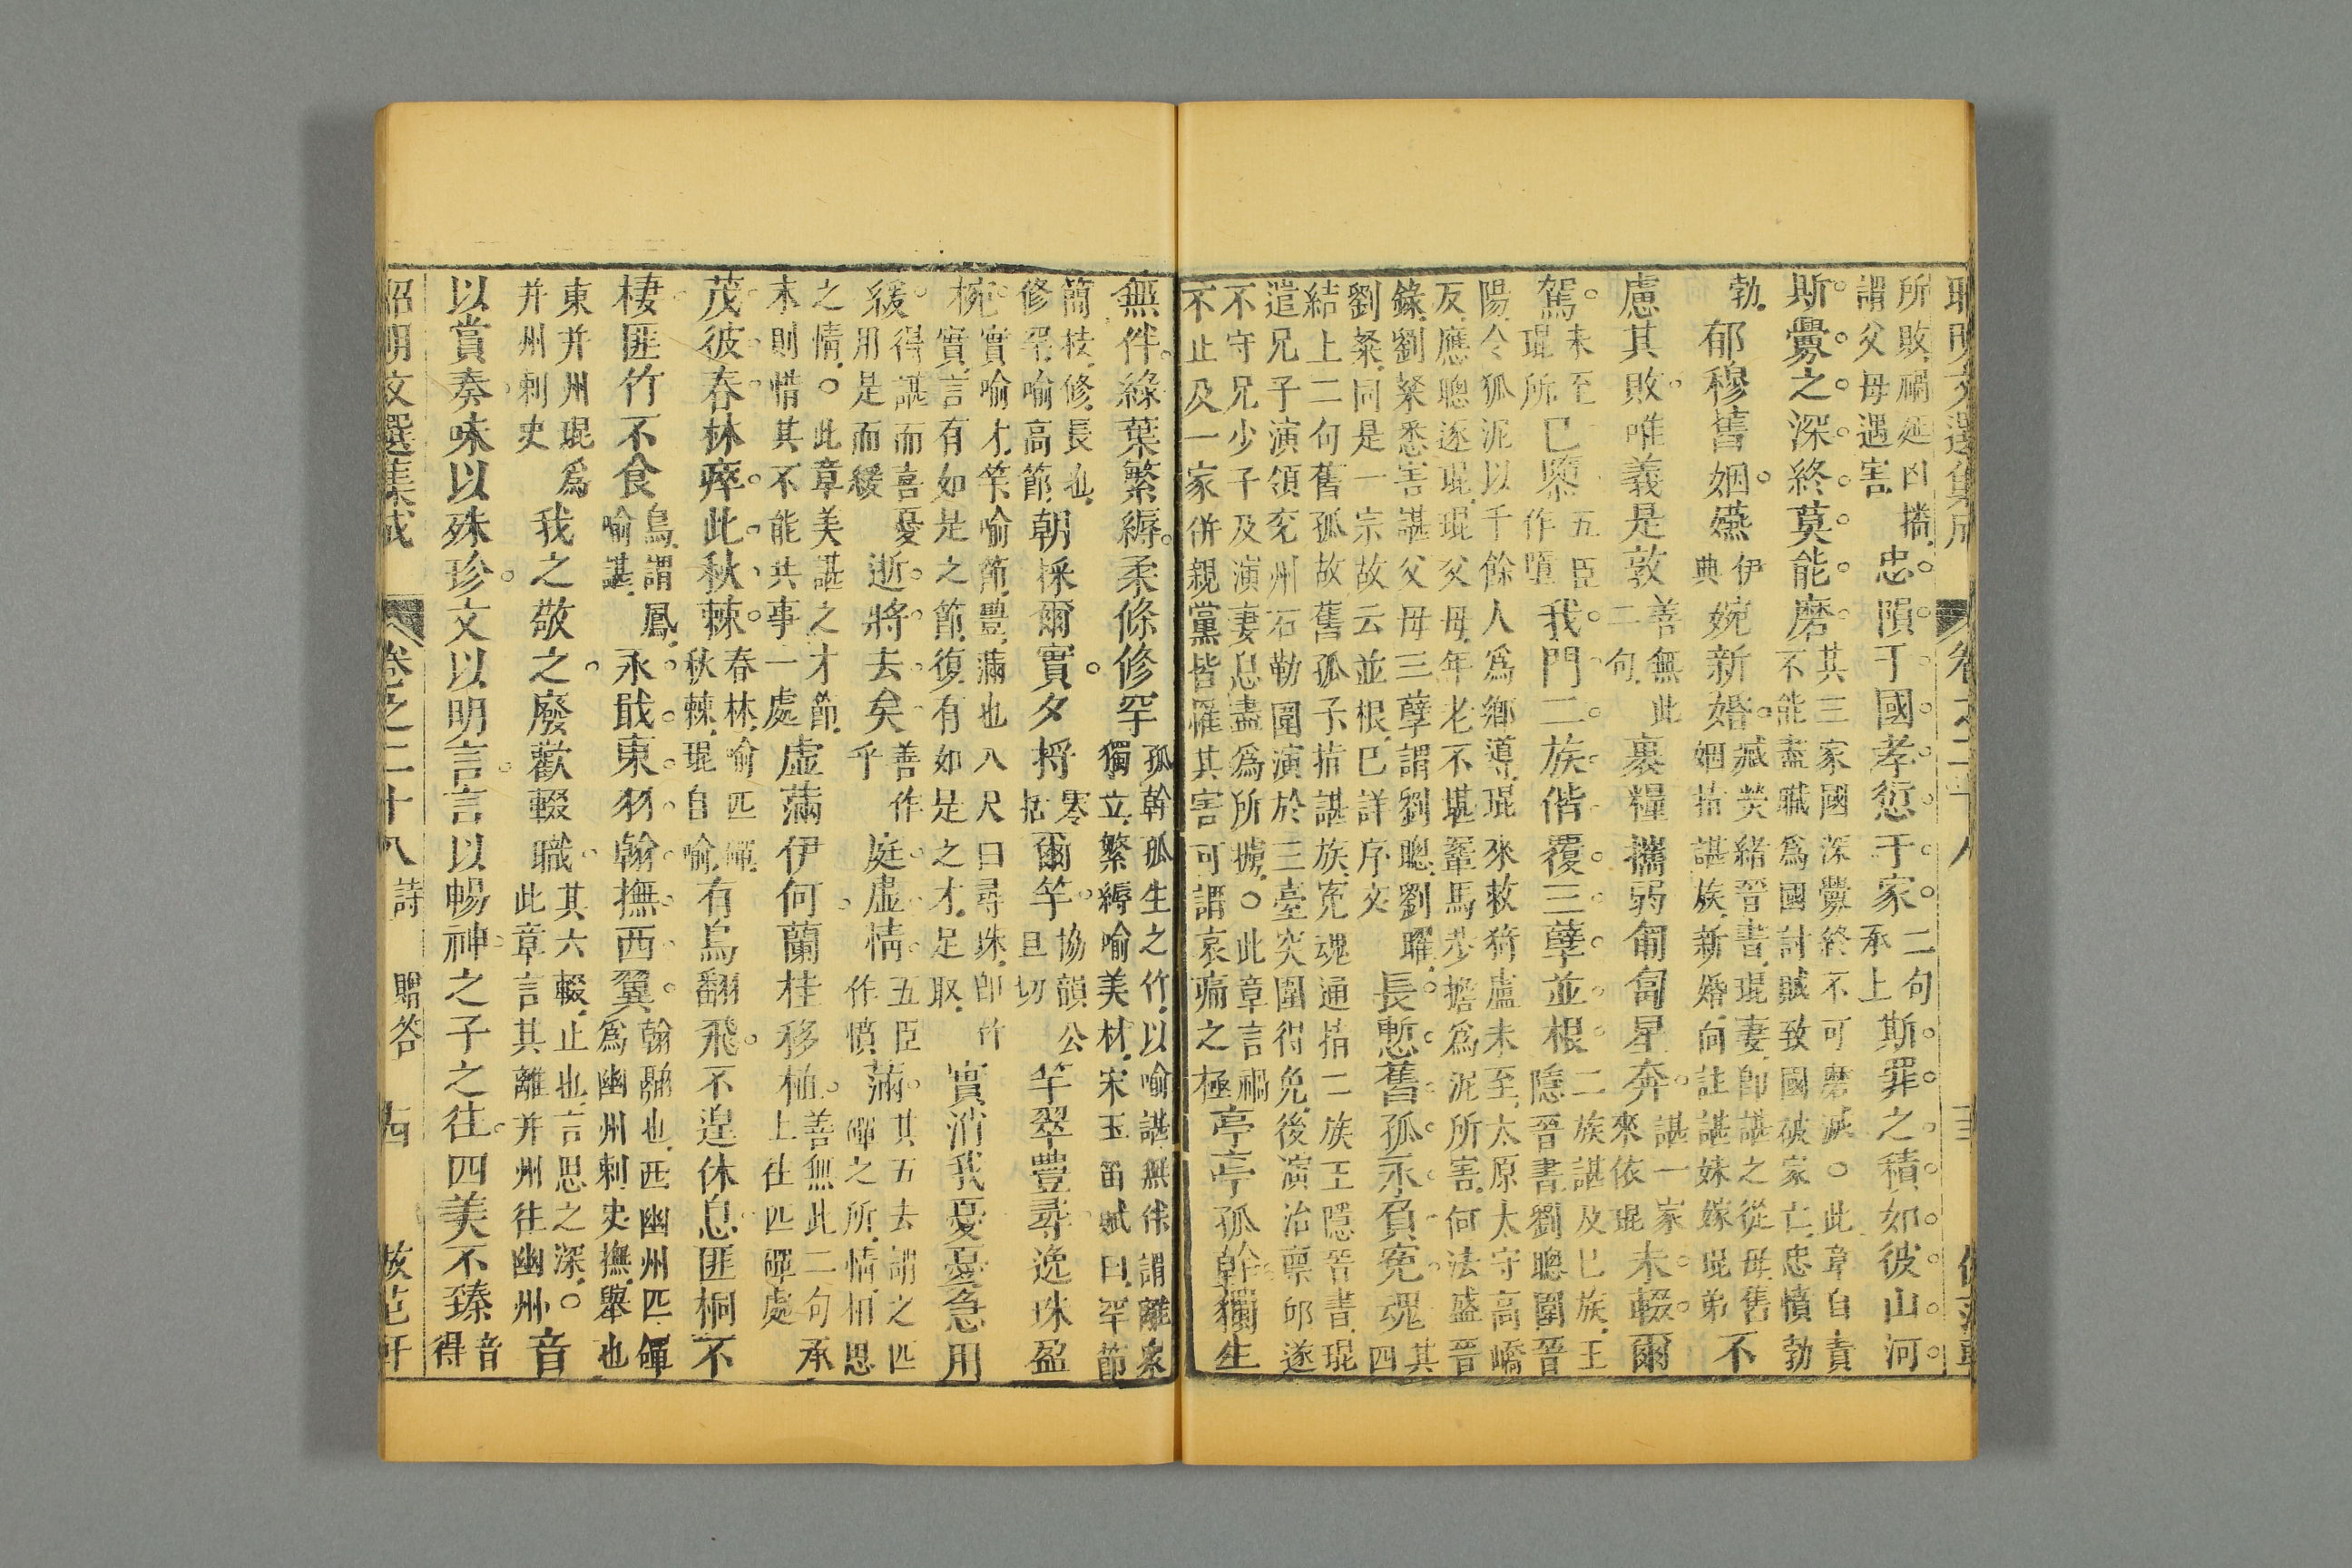 所敗禍延凶播
謂父母遇害
忠隕于國孝愆于家
二句
承上
斯罪之積如彼山河
斯釁之深終莫能磨
其三家國深釁終不可磨滅○此章自責
不能盡職為國討賊致國破家亡忠憤勃
勃
郁穆舊姻嬿
伊
典
婉新婚
臧榮緒晉書琨妻即諶之從母舊
姻指諶族新婚向註諶妹嫁琨弟
不
慮其敗唯義是敦
善無此
二句
裹糧攜弱匍匐星奔
諶一家
來依琨
未輟爾
駕
未至
琨所
已隳
五臣
作墮
我門二族偕覆三孽並根
二族諶及已族王
隱晉書劉聰圍晉
陽令狐泥以千餘人爲鄉導琨來救猗盧未至太原太守高嶠
反應聰逐琨琨父母年老不堪鞍馬步擔爲泥所害何法盛晉
錄劉粲悉害諶父母三孽謂劉聰劉曜
劉粲同是一宗故云並根已詳序文
長慙舊孤永負冤魂
其
四
結上二句舊孤故舊孤子指諶族冤魂通指二族王隱晉書琨
遣兄子演領兖州石勒圍演於三臺突圍得免後演治禀邱遂
不守兄少子及演妻息盡爲所擄○此章言禍
不止及一家併親黨皆罹其害可謂哀痛之極
亭亭孤幹獨生
無伴綠葉繁縟柔條修罕
孤幹孤生之竹以喻諶無伴謂離衆
獨立繁縟喻美材宋玉笛賦曰罕節
簡枝修長也
修罕喻高節
朝採爾實夕捋
零
括
爾竿
協韻公
旦切
竿翠豐尋逸珠盈
椀
實喻才竿喻節豐滿也八尺曰尋珠即竹
實言有如是之節復有如是之才足取
實消我憂憂急用
緩
得諶而喜憂
用是而緩
逝將去矣
善作
乎
庭虛情
五臣
作憤
滿
其五去謂之匹
磾之所情相思
之情○此章美諶之才節
末則惜其不能共事一處
虛滿伊何蘭桂移植
善無此二句承
上往匹磾處
茂彼春林瘁此秋棘
春林喻匹磾
秋棘琨自喻
有鳥翻飛不遑休息匪桐不
棲匪竹不食
鳥謂鳳
喻諶
永戢東羽翰撫西翼
翰翮也西幽州匹磾
爲幽州刺史撫舉也
東并州琨爲
并州刺史
我之敬之廢歡輟職
其六輟止也言思之深○
此章言其離并州往幽州
音
以賞奏味以殊珍文以明言言以暢神之子之往四美不臻
音
得
昭明文選集成 卷之二十八 詩 贈答